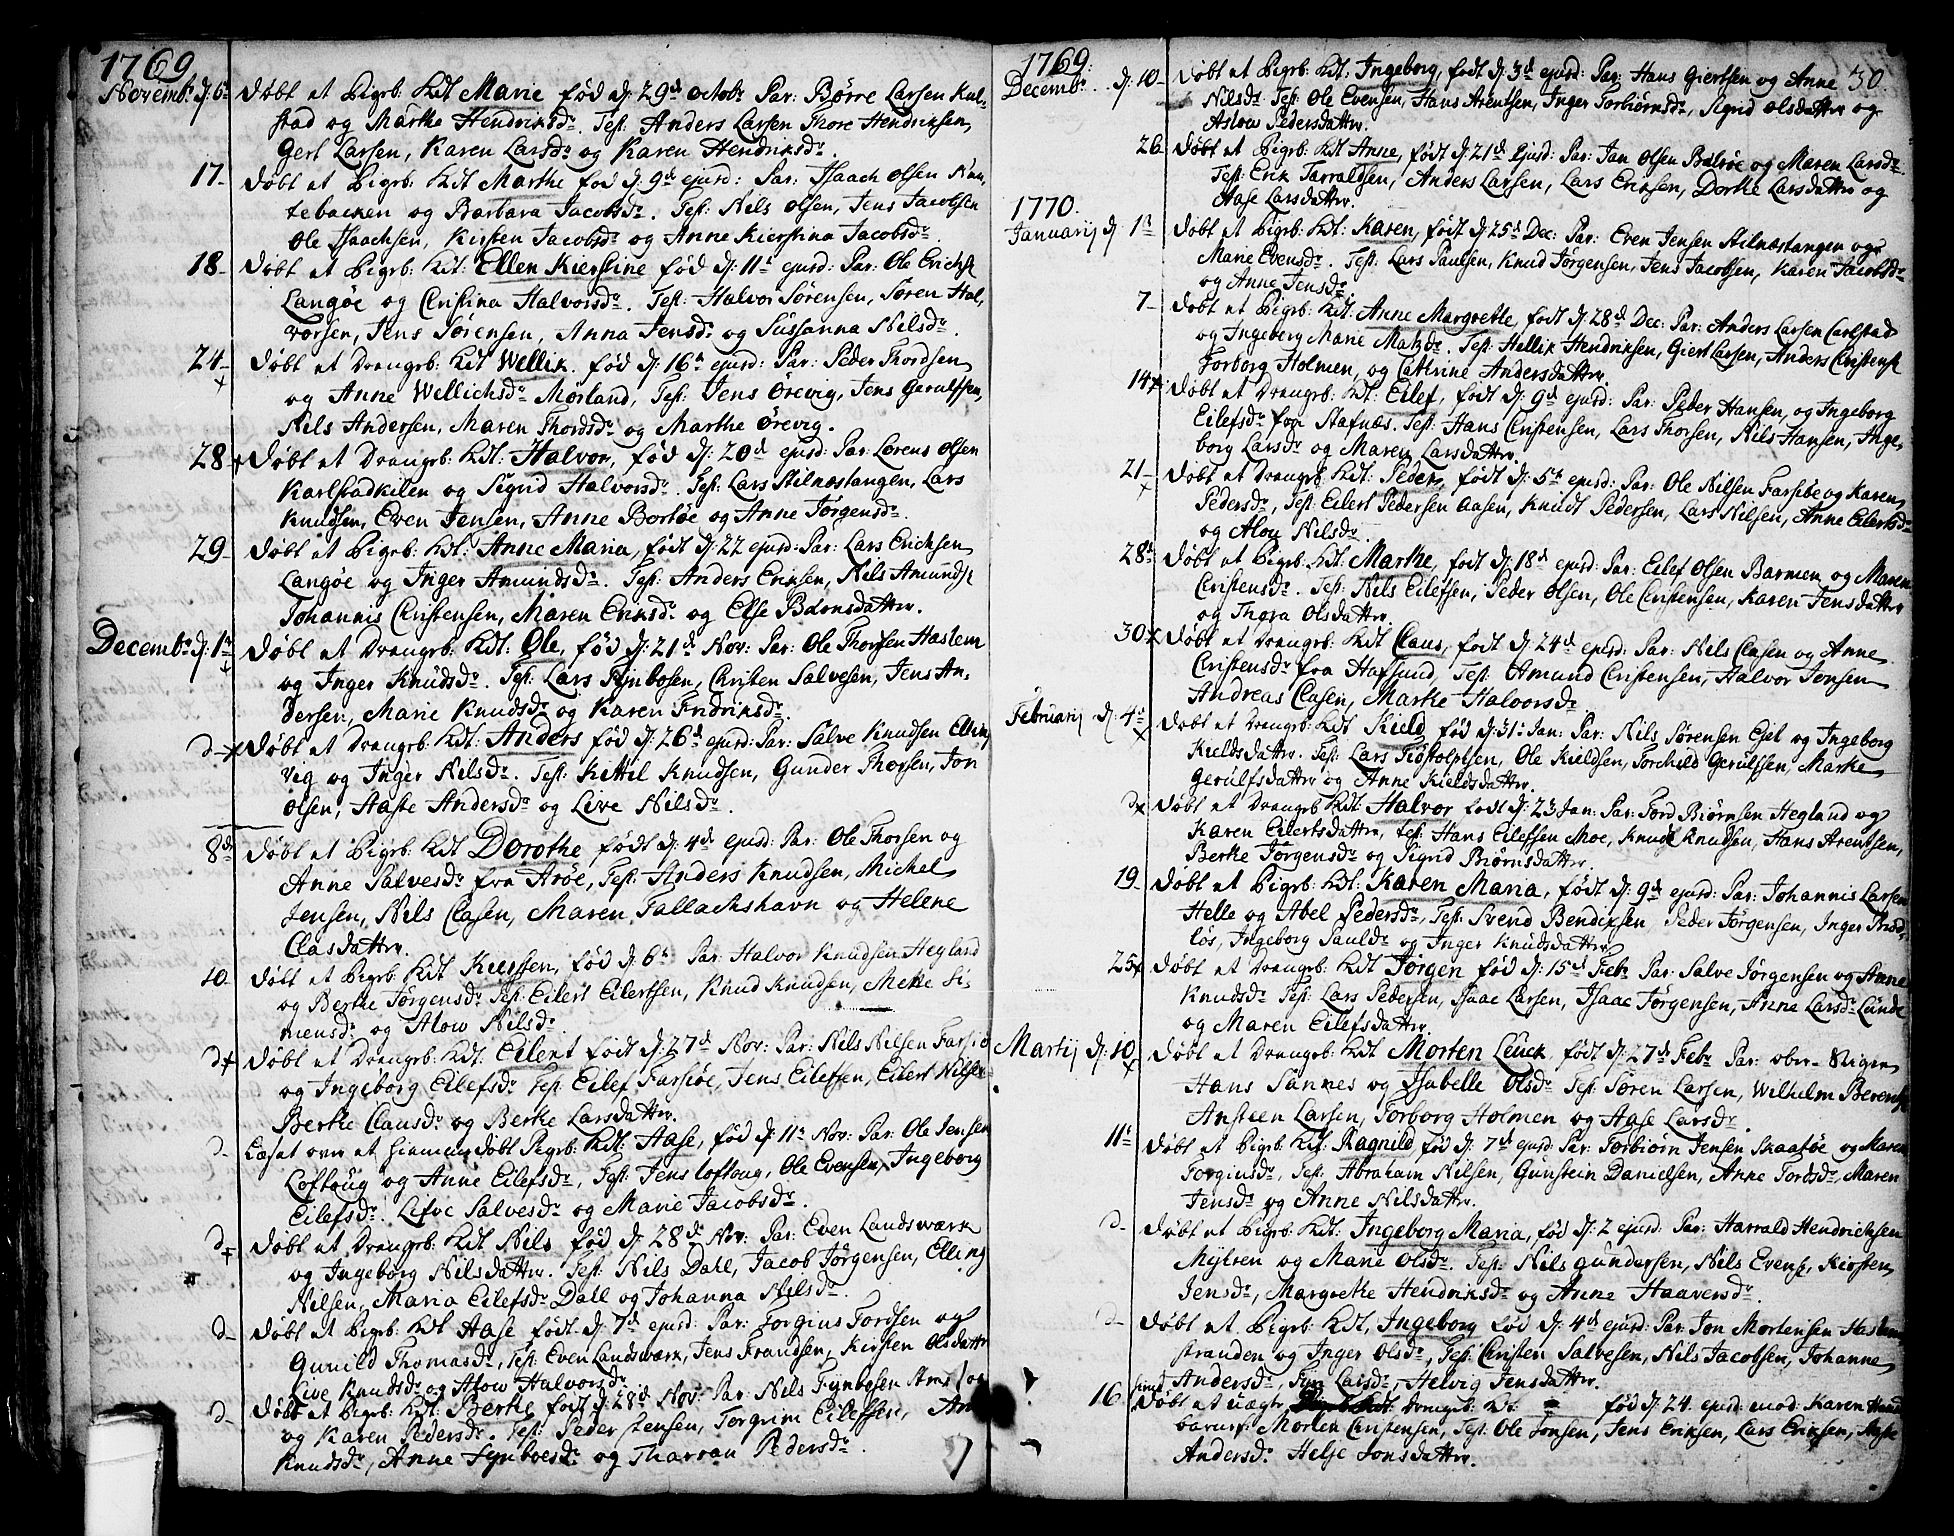 1769
Novembr d: 6t døbt et Pigeb: Kdt Marie fød d: 29d octobr Par: Børre Larsen Kal-
stad og Marthe Hendriksdr. Test: Anders Larsen Thore Hendriksen,
Gert Larsen, Karen Larsdr og Karen Hendriksdr.
17- døbt et Pigrb: Kdt Marthe fød d: 9d ejusd: Par: Isaach Olsen
tebacken og Barbara Jacobsdr. Test: Nils Olsen, Jens Jacobsen
Ole Isaachsen, Kirsten Jacobsdr og Anne Kierstina Jacobsdr.
18- døbt et Pigrb: Kdt: Ellen Kierstine fød d: 11t ejusd: Par: Ole Erichs:
Langøe og Christina Halvorsdr. Test: Halvor Sørensen, Søren Hal,
vorsen, Jens Sørensen, Anna Jensdr og Sussanna Nilsdr.
24- døbt et Drengrb: Kdt Wellik. fød d: 16t ejusd: Par: Peder Thordsen
og Anne Wellichsdr Morland, Test: Jens Ørevig, Jens Gerulfsen,
Nils Andersen, Maren Thordsdr og Marthe Ørevig.
28 døbt et Drengrb: Kdt: Halvor, fød d: 20d ejusd: Par: Lorens Olsen
Karlstadkilen og Sigrid Halvorsdr. Test: Lars Stilnæstangen, Lars
Knudsen, Even Jensen, Anne Bortøe og Anne Jørgensdr.
29- døbt et Pigrb: Kdt: Anne Maria, født d: 22 ejusd: Par: Lars Ericksen
Langøe og Inger Amundsdr. Test: Anders Eriksen, Nils Amunds:
Johannis Christensen, Maren Eriksdr og Else Biørnsdattr.
Decembr d: 1t døbt et Drengrb: Kdt: Ole, fød d: 21d Nov: Par: Ole Thorsen Haslem
og Inger Knudsdr. Test: Lars Fynbosen, Christen Salvesen, Jens An-
dersen, Marie Knudsdr og Karen Fridriksdr.
d- døbt et Drengrb: Kdt: Anders fød d: 26d ejusd: Par: Salve Knudsen Elling
vig og Inger Nilsdr. Test: Kittil Knudsen, Gunder Thorsen, Jon
Olsen, Aaste Andersdr og Live Nilsdr.
8d døbt et Pigrb: Kdt Dorothe født d: 4d ejusd: Par: Ole Thorsen og
Anne Salvesdr fra Arøe, Test: Anders Knudsen, Michel
Jensen, Nils Clasen, Maren Tallachshavn og Helene
Clasdattr.
10- døbt et Pigrb: Kdt Kiersten, fød d: 6t Par: Halvor Knudsen Hegland
og Berthe Jørgensdr Test: Eilert Eilertsen, Knud Knudsen, Mette Si-
mensdr og Alow Nilsdr.
d døbt et Drengrb: Kdt: Eilert født d: 27d Nov: Par: Nils Nilsen Farsiø
og Ingeborg Eilefsdr Test: Eilef Farsiøe, Jens Eilefsen, Eilert Nilsen
Berthe Clausdr og Berthe Larsdattr.
d- Læset over et hiemmedøbt Pigrb: Kdt: Aase, fød d: 11t Nov: Par: Ole Jensen
Loftoug og Anne Eilefsdr, Test: Jens Loftoug, Ole Evensen, Ingeborg
Eilefsdr. Lifve Salvesdr og Marie Jacobsdr.
d døbt et Drengrb: Kdt Nils fød d: 28d Nov: Par: Even Landsværk
og Ingeborg Nilsdattr. Test: Nils Dahl, Jacob Jørgensen, Elling
Nilsen, Maria Eilefsdr Dall og Johanna Nilsdr.
d- døbt et Pigrb: Kdt Aase født d: 7d ejusd: Par: Torgius Tordsen og
Gunild Thomasdr, Test: Even Landsværk, Jens Frandsen, Kirsten Olsdattr
Live Knudsdr og Alow Halvorsdr.
d- døbt et Pigrb: Kdt: Berthe født d: 28d Nov: Par: Nils Fynbosen
og Karen Pedersdr. Test: Peder Jensen, Torgrim Eilefsen, An
Knudsdr, Anne Fynboesdr og Tharran Pedersdr.
1769.
30.
Decembr d: 10- døbt et Pigrb: Kdt: Ingeborg, født d: 3d ejusd: Par: Hans Giertsen og Anne
Nilsdr. Test: Ole Evensen, Hans Arentsen, Inger Torbiørnsdr, Sigrid Olsdattr og
Aslow Pedersdattr.
26 døbt et Pigrb: Kdt Anne, født d: 21d Ejusd: Par: Jan Olsen Bolsøe og Maren Larsdr.
Test: Erik Tarraldsen, Anders Larsen, Lars Eriksen, Dorthe Larsdattr og
Aase Larsdattr.
1770.
Januarij d: 1t døbt et Pigrb: Kdt: Karen, født d: 25d Dec: Par: Even Jensen Stilnæstangen og
Marie Evensdr. Test: Lars Paulsen, Knud Jørgensen, Jens Jacobsen, Karen Jacobsdr
og Anne Jensdr.
7- døbt et Pigrb: Kdt: Anne Margrethe, født d: 28d Dec: Par: Anders Larsen Carlstad
og Ingeborg Marie Matzdr. Test: Hellik Hendriksen, Giert Larsen, Anders Christens:
Torborg Holmen, og Cathrine Andersdattr.
14 døbt et Drengrb: Kdt: Eilef, født d: 9d ejusd: Par: Peder Hansen, og Ingeborg
Eilefsdr fra Stafnæs. Test: Hans Christensen, Lars Thorsen, Nils Hansen, Inge,
borg Larsdr og Maren Larsdattr.
21- døbt et Drengrb: Kdt: Peder, født d: 5t ejusd: Par: Ole Nilsen Farsiøe og Karen
Pedersdr, Test: Eilert Pedersen Aasen, Knudt Pedersen, Lars Nilsen, Anne Eilertsdr
og Alou Nilsdr.
28d døbt et Pigrb: Kdt: Marthe, født d: 18d ejusd: Par: Eilef Olsen Barmen og Maren
Christensdr. Test: Nils Eilefsen, Peder Olsen, Ole Christensen, Karen Jensdattr
og Thora Olsdattr.
30 døbt et Drengrb: Kdt Claus, født d: 24d ejusd: Par: Nils Clasen og Anne
Christensdr fra Hafsund, Test: Amund Christensen, Halvor Jensen
Andreas Clasen, Marthe Halvorsdr.
Februarij d: 4t døbt et Drengrb: Kdt Kield fød d: 31t Jan: Par: Nils Sørensen Eset og Ingeborg
Kieldsdattr. Test: Lars Tiøstolfsen, Ole Kieldsen, Torchild Gerulfsen, Marthe
Gerulfsdattr og Anne Kieldsdattr.
d døbt et Drengrb: Kdt: Halvor født d: 23 Jan: Par: Tord Biørnsen Hegland og
Karen Eilertsdattr, Test: Hans Eilefsen Moe, Knud Knudsen, Hans Arentsen,
Berthe Jørgensdr og Sigrid Biørnsdattr.
19 døbt et Pigrb: Kdt: Karen Maria, født d: 9d ejusd: Par: Johannis Larsen
Helle og Abel Pedersdr, Test: Svend Bendixsen Peder Jørgensen, Inger
løs, Ingeborg Paulsdr og Inger Knudsdattr.
25 døbt et Drengrb: Kdt Jørgen fød d: 15d Febr: Par: Salve Jørgensen og Anne
Knudsdr Test: Lars Pedersen, Isaac Larsen, Isaac Jørgensen, Anne Larsdr Lunde
og Maren Eilefsdattr.
Martij d: 10 døbt et Drengrb: Kdt Morten Leuch, født d: 27d Febr Par:
Hans Sannes og Isabelle Olsdr Test: Søren Larsen, Wilhelm Berents:
Ansteen Larsen, Torborg Holmen og Aase Larsdr.
11t døbt et Pigrb: Kdt: Ragnild fød d: 7d ejusd: Par: Torbiørn Jensen Skaatøe og Maren
Torgiusdr, Test: Abraham Nilsen, Gunstein Danielsen, Anne Tordsdr, Maren
Jensdr og Anne Nilsdattr.
d- døbt et Pigrb: Kdt: Ingeborg Maria, fød d: 2 ejusd: Par: Harrald Hendrichsen
Myhren og Marie Olsdr. Test: Nils Gundersen, Nils Evens:, Kirsten
Jensdr, Margrethe Hendriksdr og Anne Haaversdr.
d- døbt et Pigrb: Kdt, Ingeborg fød d: 4d ejusd: Par: Jon Mortensen Haslem
stranden og Inger Olsdr, Test: Christen Salvesen, Nils Jacobsen, Johanne
Andersdr, Siri Larsdr, Helvig Jensdattr.
16 døbt et uægte Drengrb: Kdt fød d: 24. ejusd: mod: Karen
barnef: Morten Christensen, Test: Ole Jonsen, Jens Eriksen, Lars Eriksen, Aaste
Andersdr. Helje Jonsdattr.